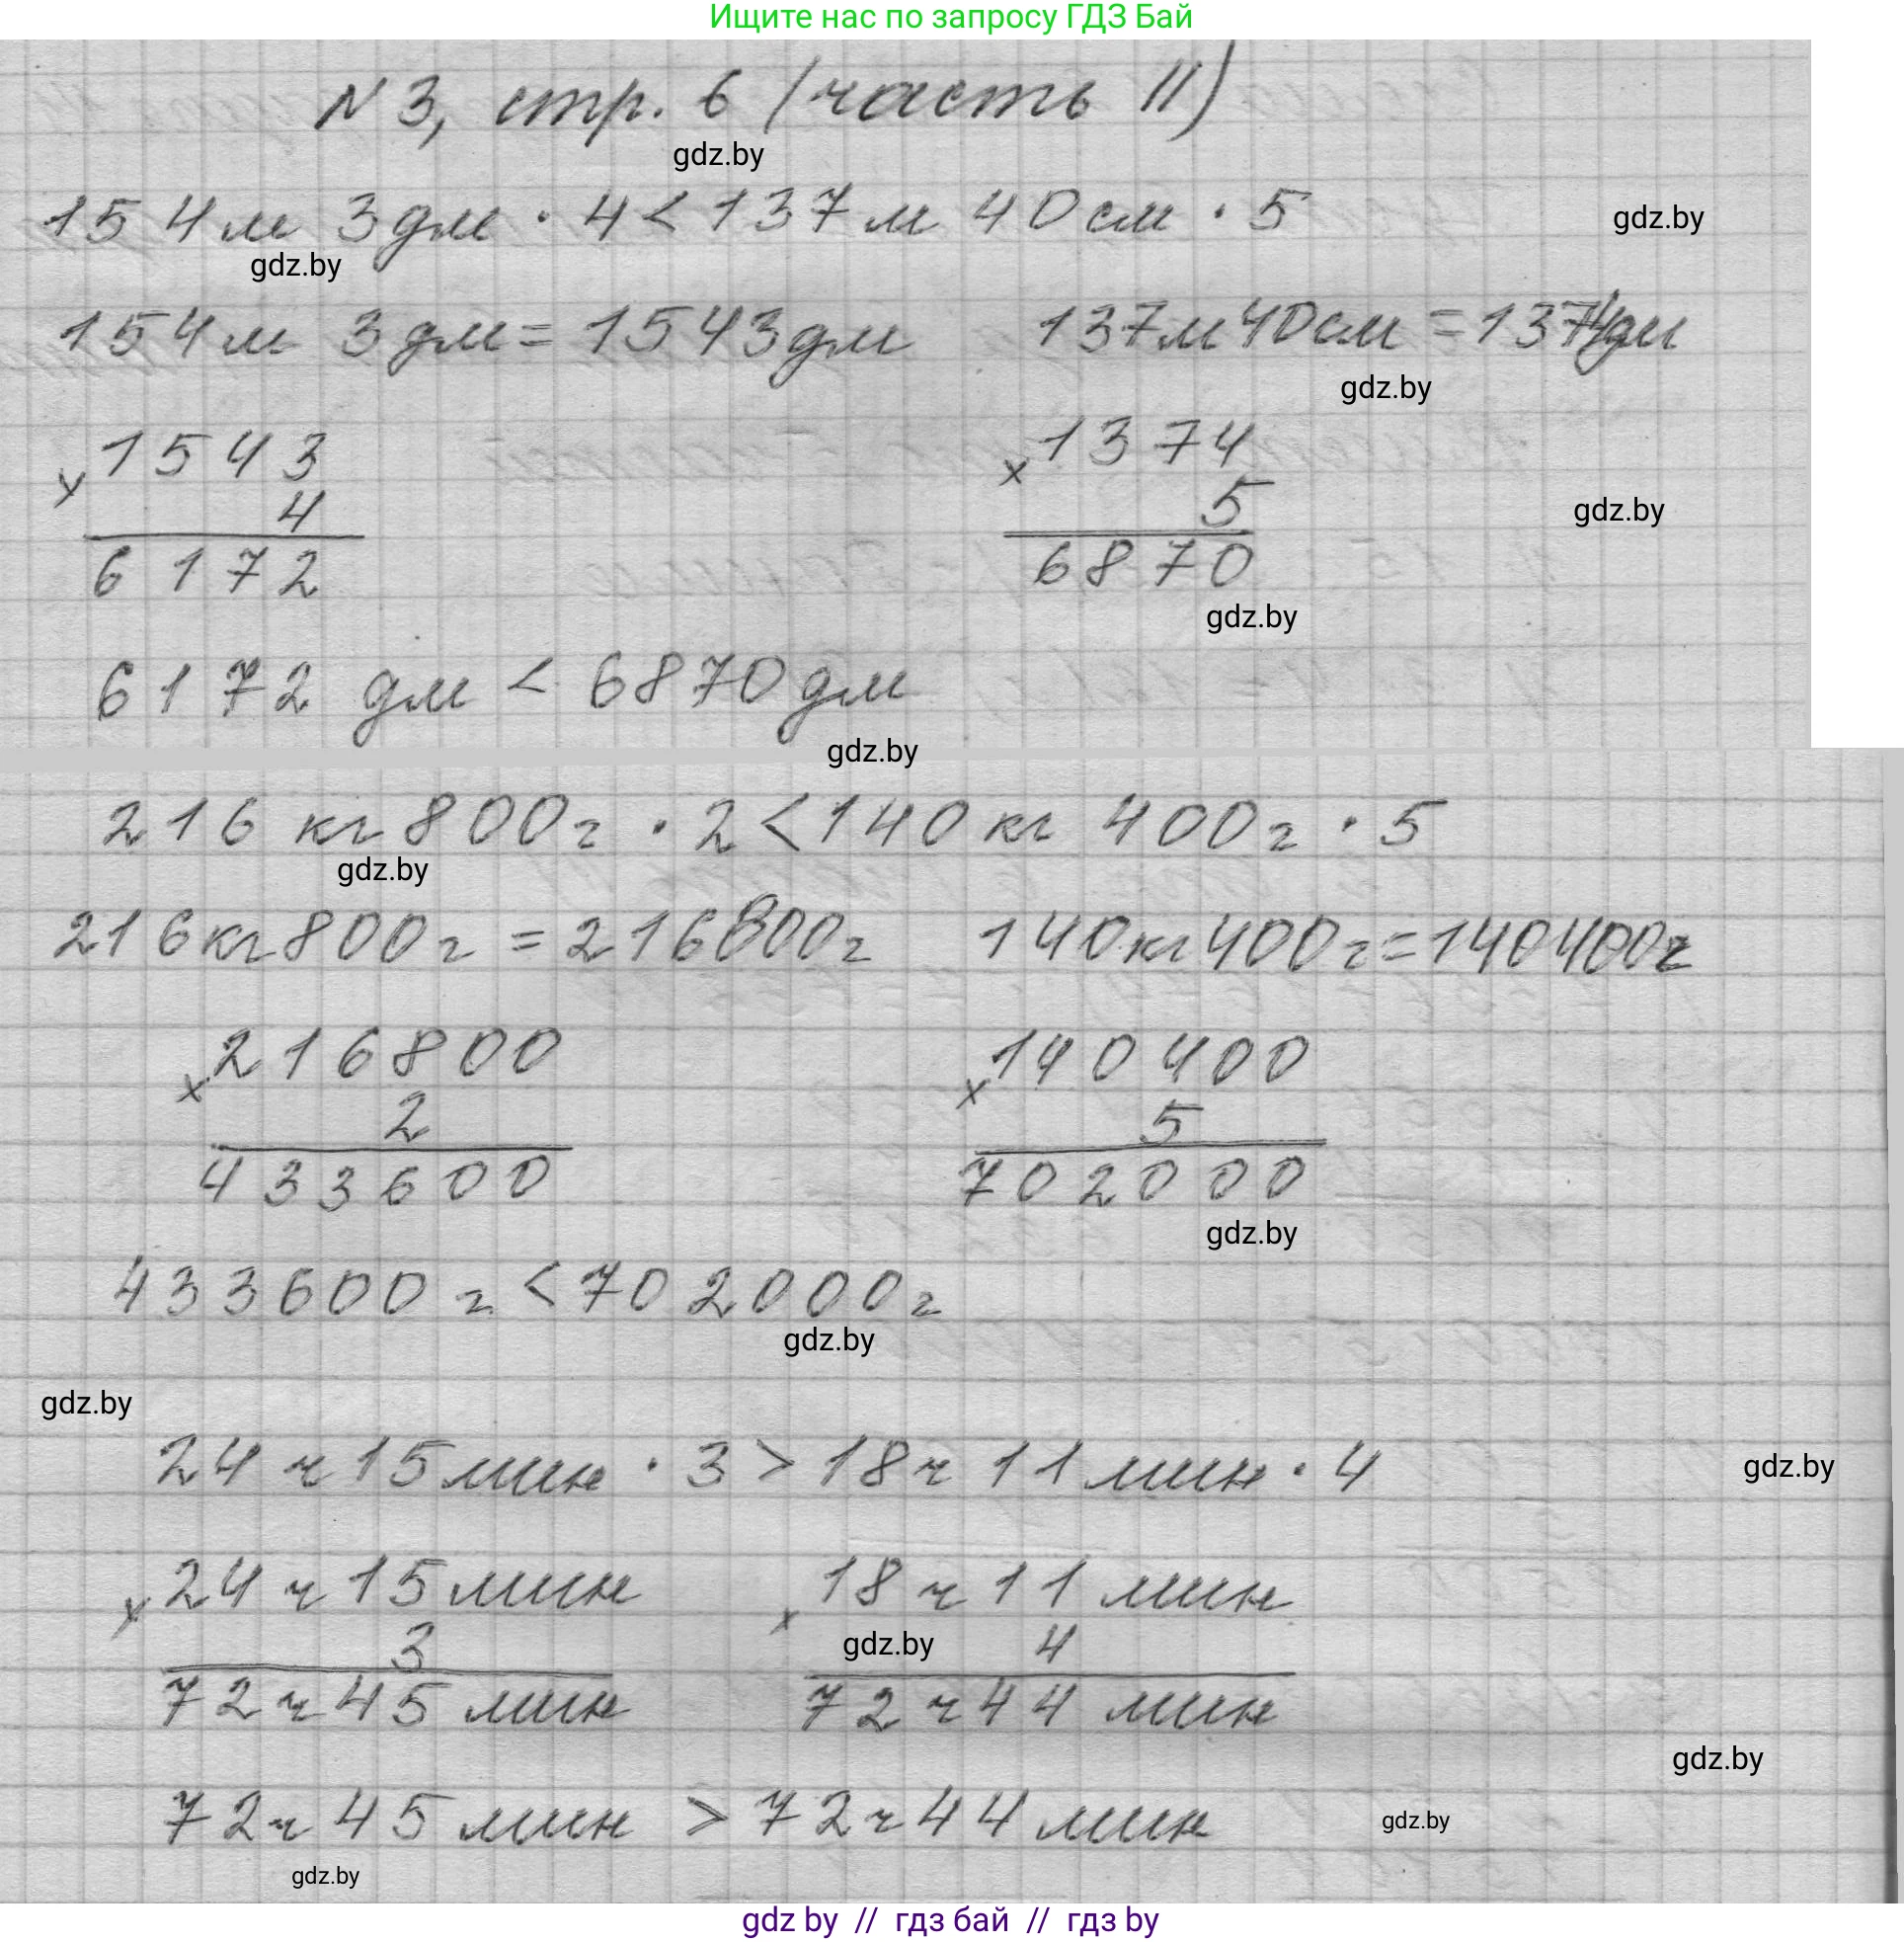 Ищите нас по запросу ГДЗ Бай
N 3, стр. 6 (часть II)
gdz.by
154 м 3 дм · 4 < 137 м 40 см · 5
gdz.by
gdz.by
154 м 3 дм = 1543 дм 137 м 40 см = 1374 дм
gdz.by
× 1543 × 1374
4 5
gdz.by
6172 6870
gdz.by
6172 дм < 6870 дм
gdz.by
216 кг 800 г · 2 < 140 кг 400 г · 5
gdz.by
216 кг 800 г = 216800 г 140 кг 400 г = 140400 г
× 216800 × 140400
2 5
433600 702000
gdz.by
433600 г < 702000 г
gdz.by
gdz.by
24 ч 15 мин · 3 > 18 ч 11 мин · 4
gdz.by
× 24 ч 15 мин × 18 ч 11 мин
3 4
gdz.by
72 ч 45 мин 72 ч 44 мин
gdz.by
72 ч 45 мин > 72 ч 44 мин
gdz.by
gdz.by
gdz by // гдз бай // гдз by